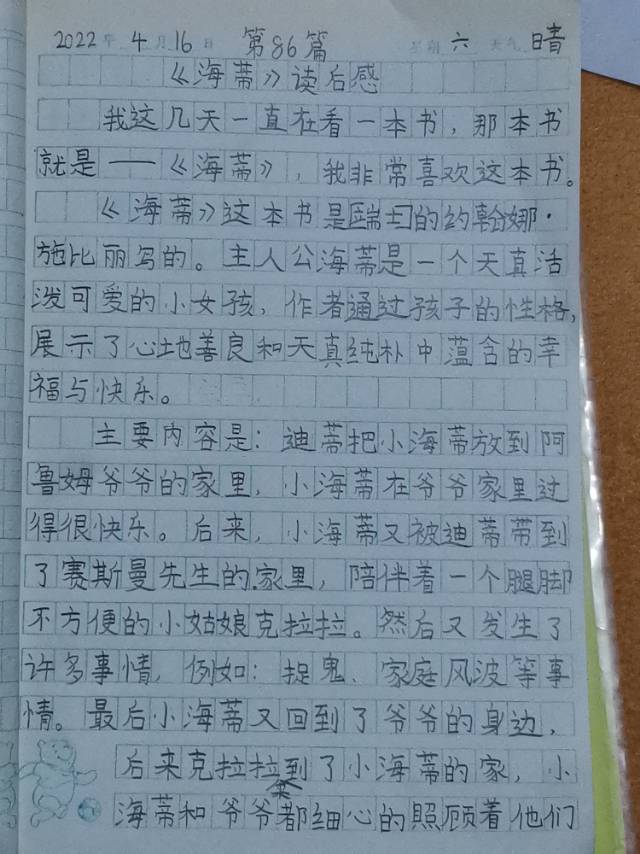 2022年 4月16日 第86篇 星期六 天气晴
《海蒂》读后感
我这几天一直在看一本书，那本书
就是——《海蒂》，我非常喜欢这本书。
《海蒂》这本书是瑞士的约翰娜·
施比丽写的。主人公海蒂是一个天真活
泼可爱的小女孩，作者通过孩子的性格，
展示了心地善良和天真纯朴中蕴含的幸
福与快乐。
主要内容是：迪蒂把小海蒂放到阿
鲁姆爷爷的家里，小海蒂在爷爷家里过
得很快乐。后来，小海蒂又被迪蒂带到
了赛斯曼先生的家里，陪伴着一个腿脚
不方便的小姑娘克拉拉。然后又发生了
许多事情，例如：捉鬼、家庭风波等事
情。最后小海蒂又回到了爷爷的身边，
后来克拉拉来到了小海蒂的家，小
海蒂和爷爷都细心的照顾着他们